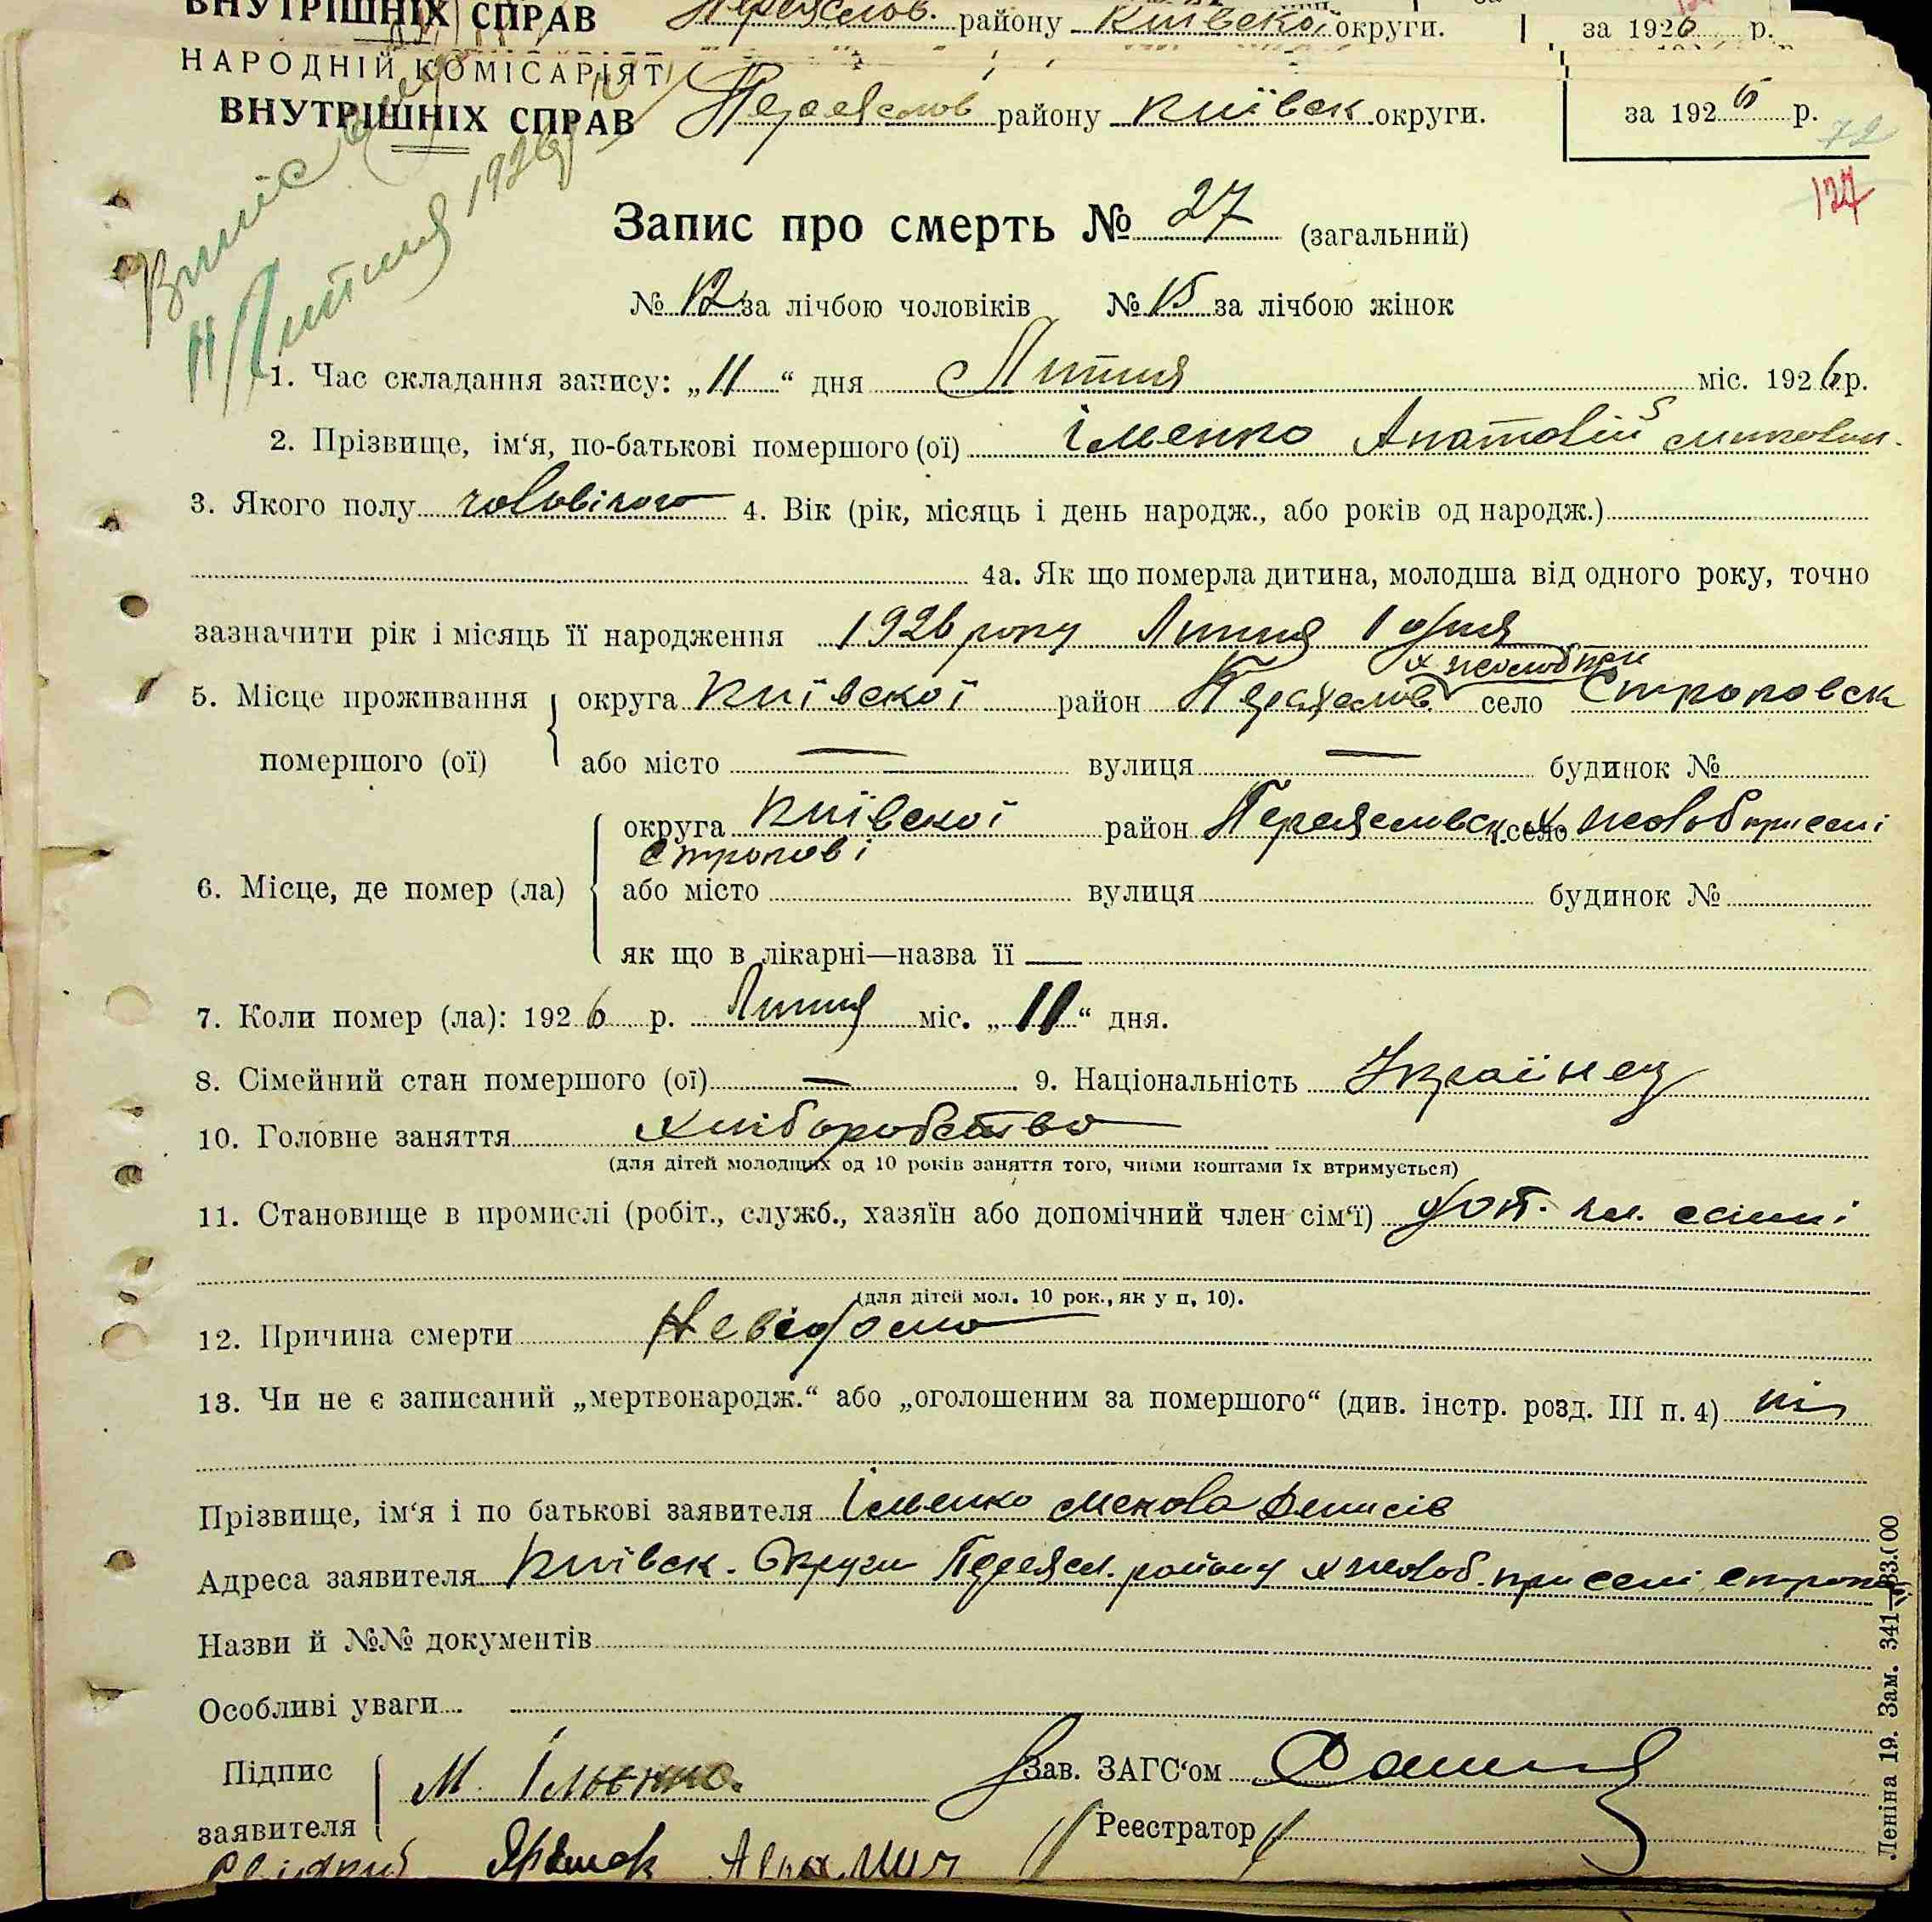 ВНУТРІШНІХ СПРАВ Переяслов. району Київської округи. за 1926 р.
НАРОДНІЙ КОМІСАРІЯТ
ВНУТРІШНІХ СПРАВ Переяслов району Київськ округи. за 1926 р.
72
127
11 Липня 1926
Запис про смерть № 27 (загальний)
№ 12 за лічбою чоловіків № 15 за лічбою жінок
1. Час складання запису: „11“ дня Липня міс. 1926 р.
2. Прізвище, ім‘я, по-батькові помершого (ої) Ільенко Анатолій
3. Якого полу чоловічого 4. Вік (рік, місяць і день народж., або років од народж.)
4а. Як що померла дитина, молодша від одного року, точно
зазначити рік і місяць її народження 1926 року Липня 1 дня
5. Місце проживання округа Київської район Переяслов село
помершого (ої) або місто — вулиця — будинок №
округа Київської район Переяславськ. село
Строкові
6. Місце, де помер (ла) або місто вулиця будинок №
як що в лікарні—назва її —
7. Коли помер (ла): 1926 р. Липня міс. „11“ дня.
8. Сімейний стан помершого (ої) — 9. Національність Українец
10. Головне заняття хліборобство
(для дітей молодших од 10 років заняття того, чиїми коштами їх втримується)
11. Становище в промислі (робіт., служб., хазяїн або допомічний член сім‘ї) доп. чл. сімї
(для дітей мол. 10 рок., як у п, 10).
12. Причина смерти Невідомо
13. Чи не є записаний „мертвонародж.“ або „оголошеним за помершого“ (див. інстр. розд. III п. 4) ні
Прізвище, ім‘я і по батькові заявителя Ільенко Микола Денисів
Адреса заявителя Київськ. Округи Переясл. району
Назви й №№ документів
Особливі уваги
Підпис М. Ільєнко. Зав. ЗАГС‘ом
заявителя Реєстратор
Леніна 19. Зам. 341—33.000